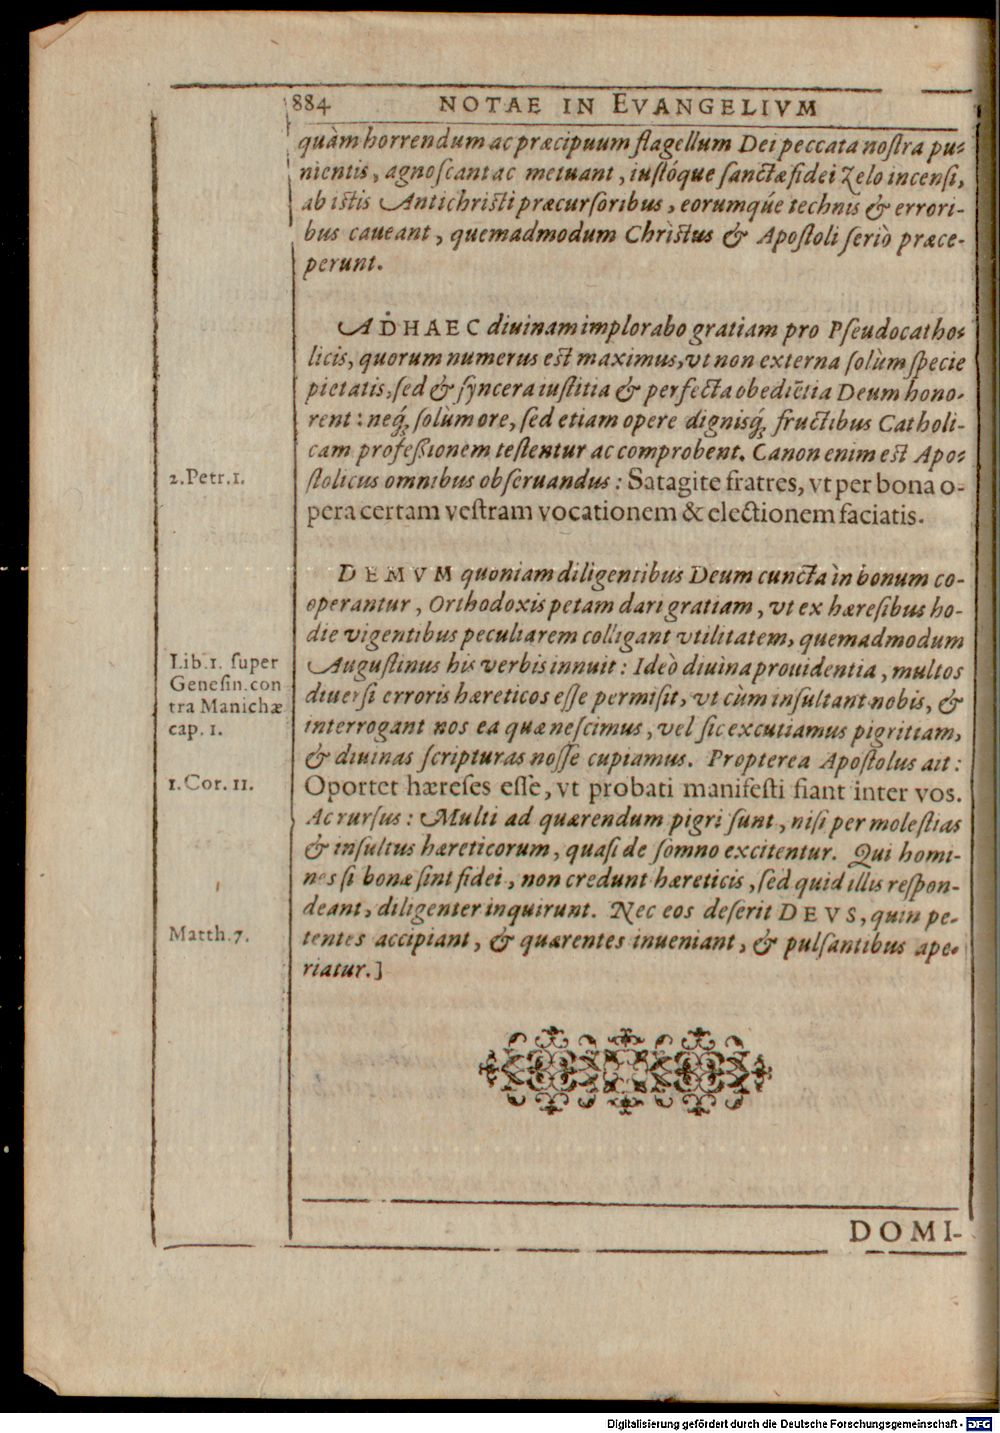 884 NOTAE IN EVANGELIVM
quàm horrendum ac præcipuum flagellum Dei peccata nostra pu-
nientis, agnoscant ac metuant, iustóque sanctæ fidei Zelo incensi,
ab istis Antichristi præcursoribus, eorumqúe technis & errori-
bus caueant, quemadmodum Christus & Apostoli seriò præce-
perunt.
AD HAEC diuinam implorabo gratiam pro Pseudocatho-
licis, quorum numerus est maximus, vt non externa solùm specie
pietatis, sed & syncera iustitia & perfecta obediētia Deum hono-
rent: neq́; solùm ore, sed etiam opere dignisq́; fructibus Catholi-
cam professionem testentur ac comprobent. Canon enim est Apo-
2.Petr.1.
stolicus omnibus obseruandus: Satagite fratres, vt per bona o-
pera certam vestram vocationem & electionem faciatis.
DEMVM quoniam diligentibus Deum cuncta in bonum co-
operantur, Orthodoxis petam dari gratiam, vt ex hæresibus ho-
die vigentibus peculiarem colligant vtilitatem, quemadmodum
Lib.1. super
Genesin.con
tra Manichæ
cap. 1.
Augustinus his verbis innuit: Ideò diuina prouidentia, multos
diuersi erroris hæreticos esse permisit, vt cùm insultant nobis, &
interrogant nos ea quæ nescimus, vel sic excutiamus pigritiam,
& diuinas scripturas nosse cupiamus. Propterea Apostolus ait:
1.Cor. 11.
Oportet hæreses esse, vt probati manifesti fiant inter vos.
Ac rursus: Multi ad quærendum pigri sunt, nisi per molestias
& insultus hæreticorum, quasi de somno excitentur. Qui homi-
nes si bonæ sint fidei, non credunt hæreticis, sed quid illis respon-
deant, diligenter inquirunt. Nec eos deserit DEVS, quin pe-
Matth.7.
tentes accipiant, & quærentes inueniant, & pulsantibus ape-
riatur.]
DOMI-
Digitalisierung gefördert durch die Deutsche Forschungsgemeinschaft - DFG